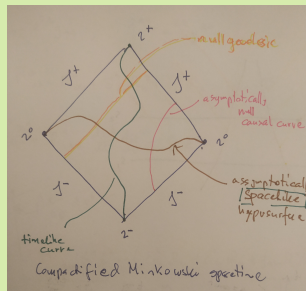 i⁺
null geodesic
J⁺
J⁺
asymptotically
null
causal curve
i⁰
i⁰
J⁻
J⁻
assymptotical
spacelike
hypersurface
i⁻
timelike
curve
Compactified Minkowski spacetime